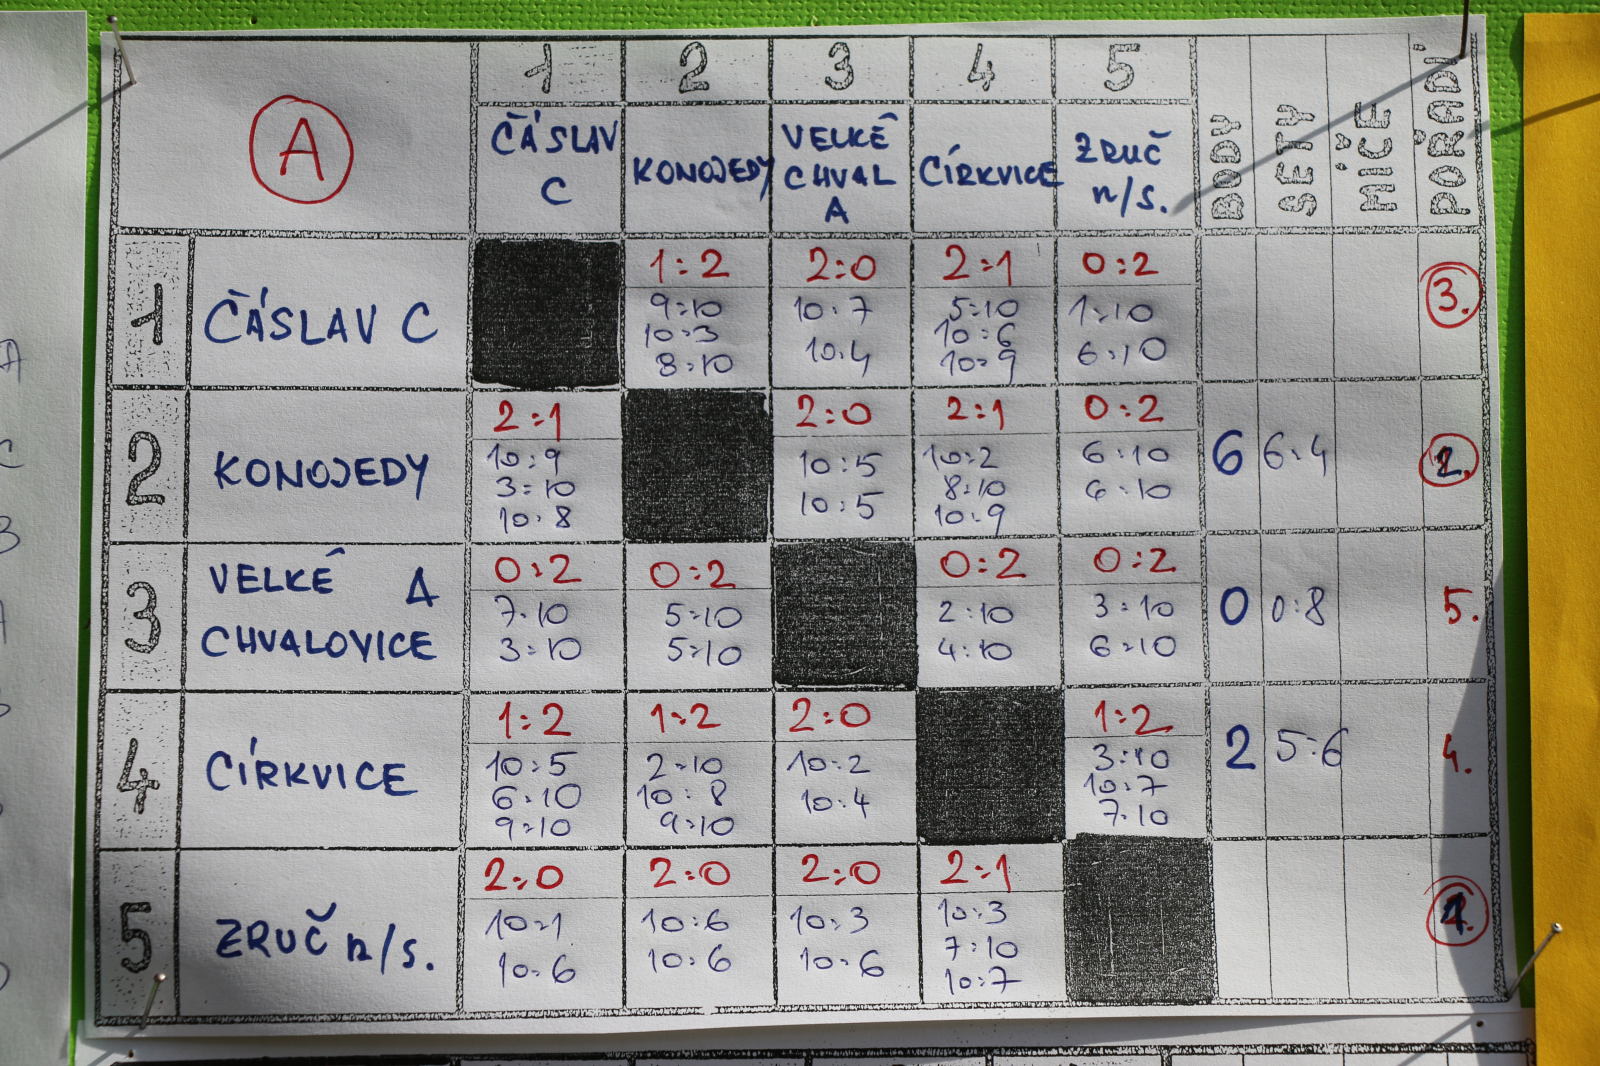 A
1 2 3 4 5
ČÁSLAV C
KONOJEDY
VELKÉ CHVAL A
CÍRKVICE
ZRUČ n/s.
BODY
SETY
MÍČE
POŘADÍ
1 ČÁSLAV C
1:2 2:0 2:1 0:2
9:10 10:7 5:10 1:10
10:3 10:4 10:6 6:10
8:10 10:9
3.
2 KONOJEDY
2:1 2:0 2:1 0:2
10:9 10:5 10:2 6:10
3:10 10:5 8:10 6:10
10:8 10:9
6 6:4 2.
3 VELKÉ A
CHVALOVICE
0:2 0:2 0:2 0:2
7:10 5:10 2:10 3:10
3:10 5:10 4:10 6:10
0 0:8 5.
4 CÍRKVICE
1:2 1:2 2:0 1:2
10:5 2:10 10:2 3:10
6:10 10:8 10:4 10:7
9:10 9:10 7:10
2 5:6 4.
5 ZRUČ n/s.
2:0 2:0 2:0 2:1
10:1 10:6 10:3 10:3
10:6 10:6 10:6 7:10
10:7
1.